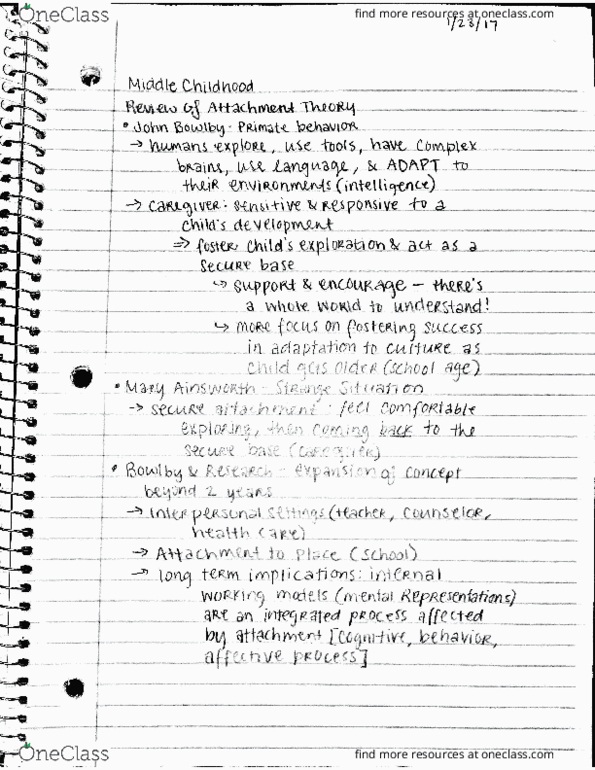 OneClass
find more resources at oneclass.com
1/23/17
Middle Childhood
Review of Attachment Theory
• John Bowlby - Primate behavior
→ humans explore, use tools, have complex
brains, use language, & ADAPT to
their environments (intelligence)
→ caregiver: sensitive & responsive to a
child's development
⇒ foster child's exploration & act as a
secure base
↳ support & encourage – there's
a whole world to understand!
↳ more focus on fostering success
in adaptation to culture as
child gets older (school age)
• Mary Ainsworth - Strange Situation
→ secure attachment: feel comfortable
exploring, then coming back to the
secure base (caregiver)
• Bowlby & Research - expansion of concept
beyond 2 years
→ Interpersonal settings (teacher, counselor,
health care)
→ Attachment to place (school)
→ long term implications: internal
working models (mental representations)
are an integrated process affected
by attachment [cognitive, behavior,
affective process]
OneClass
find more resources at oneclass.com